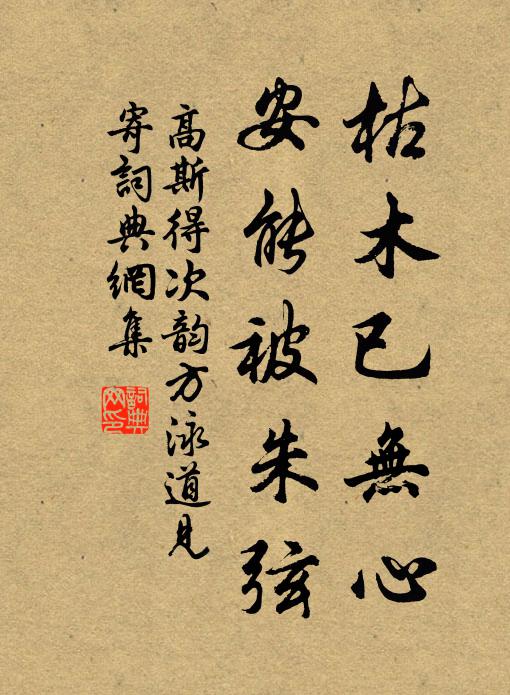 枯木已無心
安能被朱弦
高斯得次韵方泳道見
寄詞典網集
詞典
网印